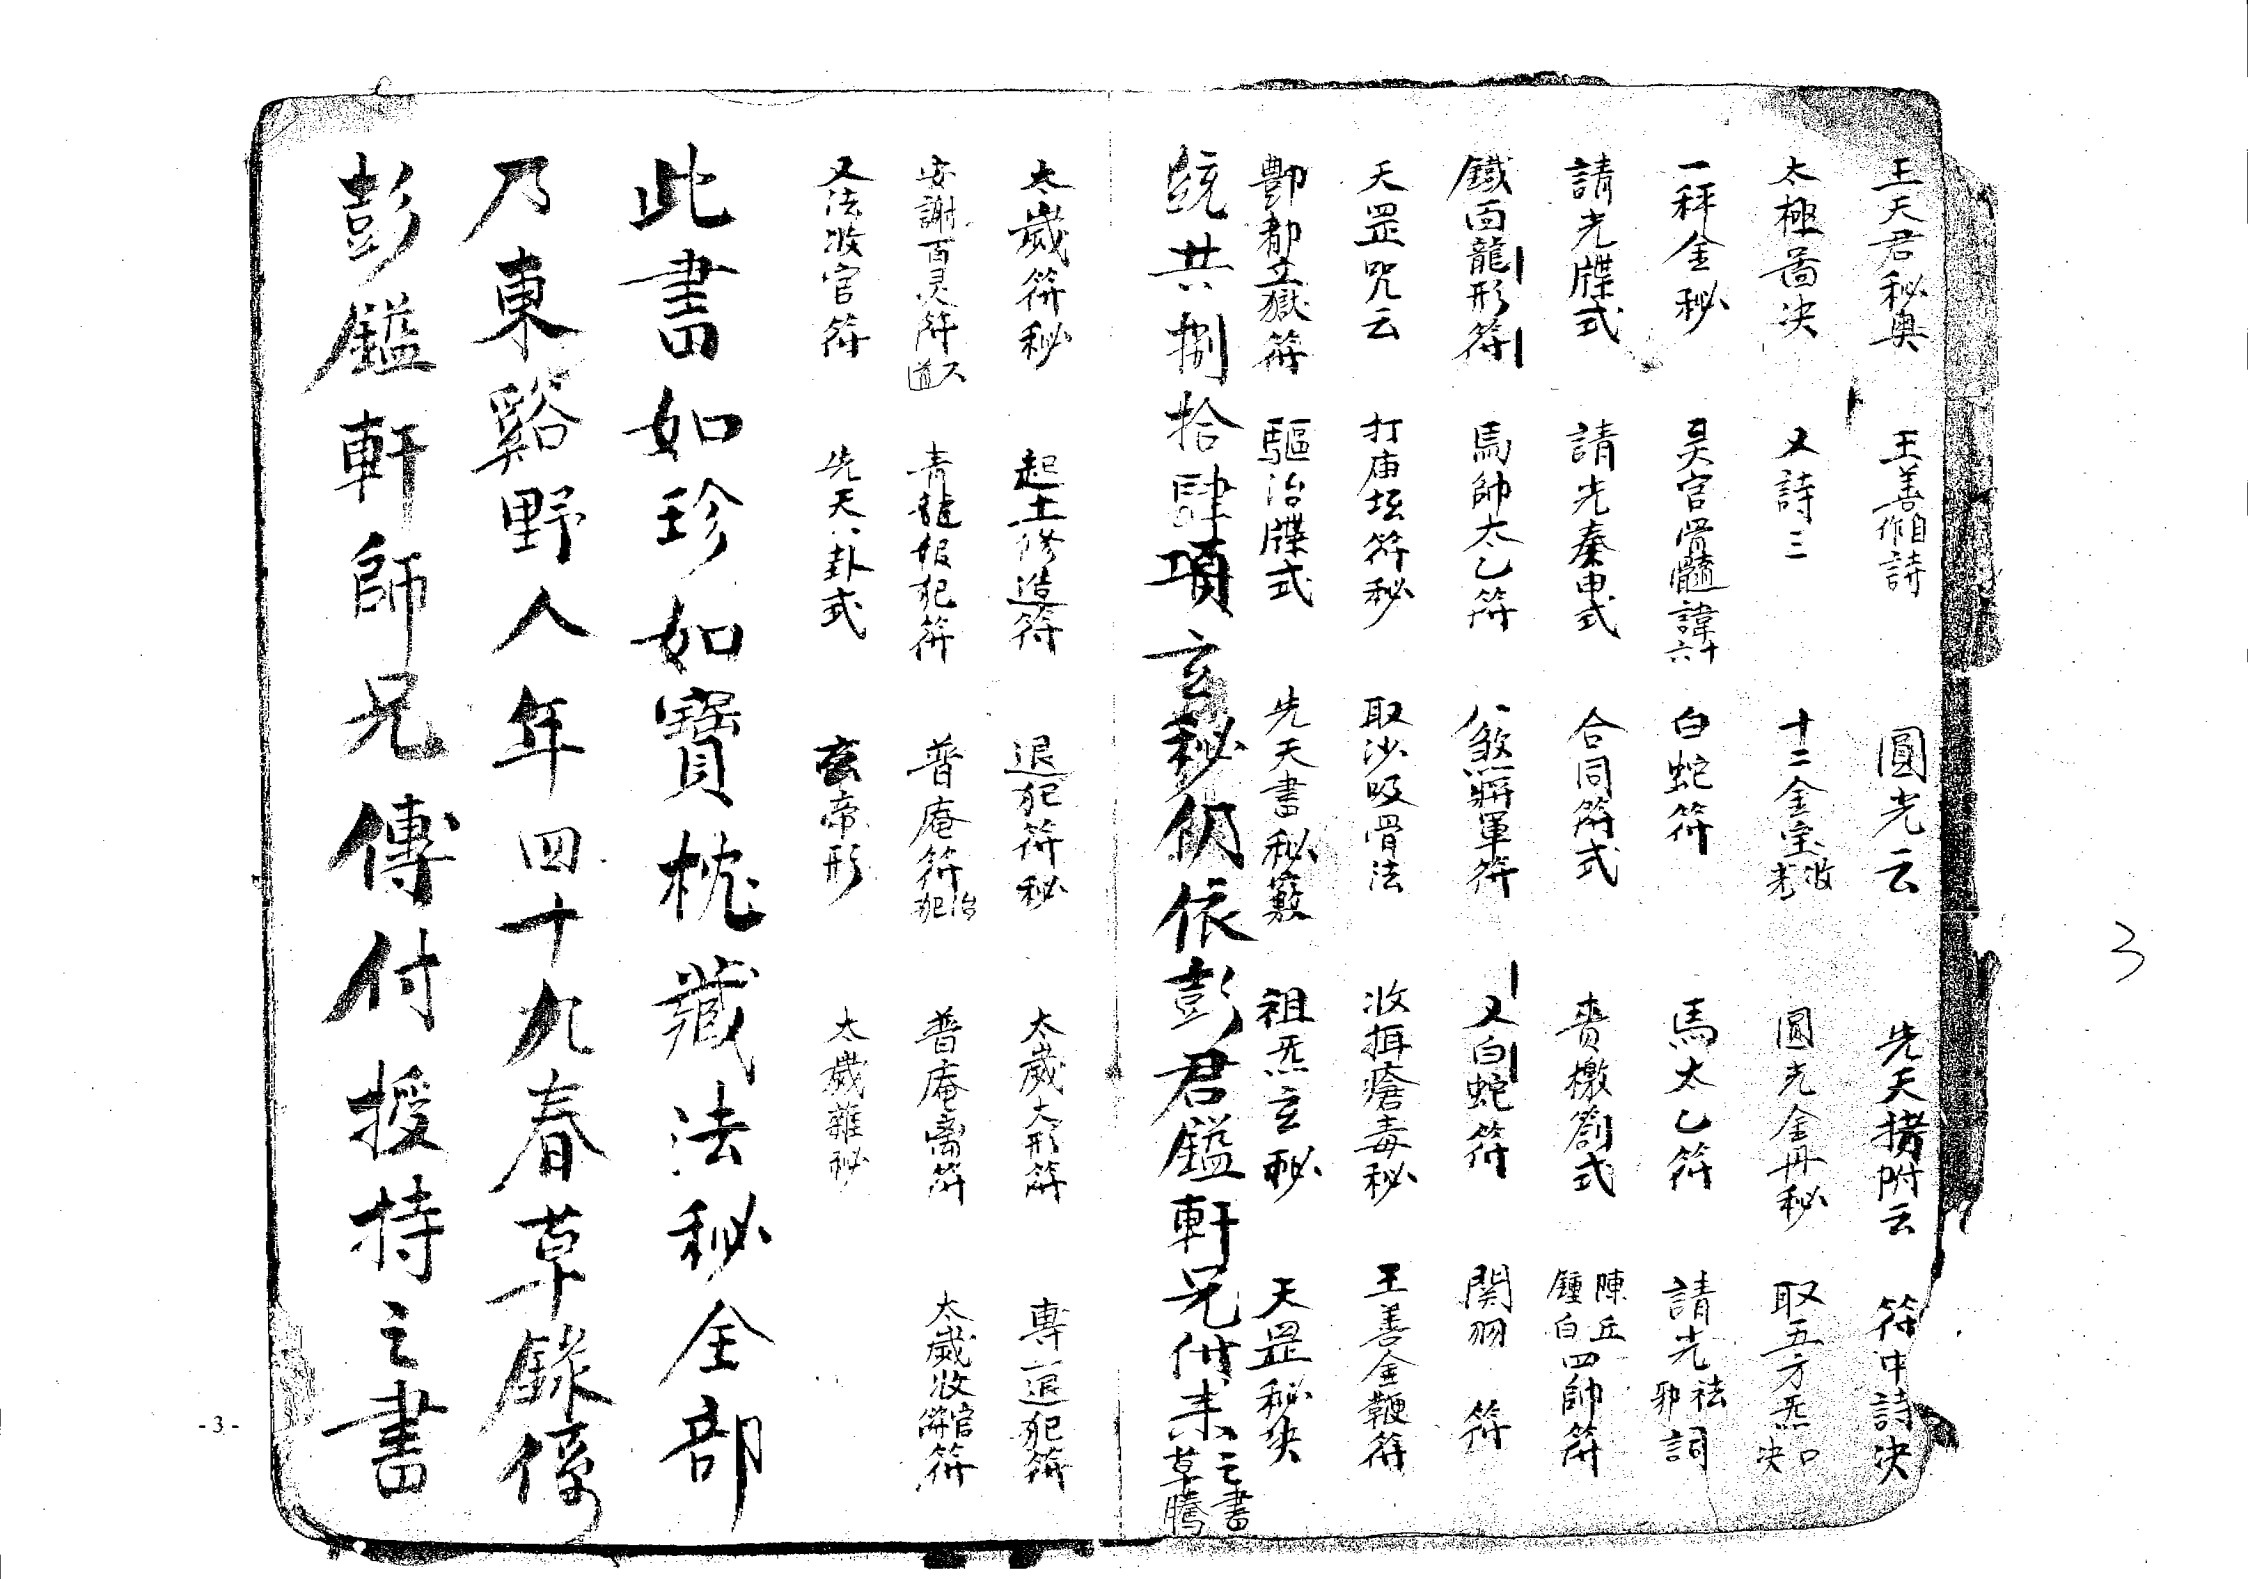 王天君秘奥 王善自作詩 圓光云 先天搆附云 符中詩決
太極啚决 又詩三 十二金宝收煞 圓光金丹秘 取五方炁口决
一秤金秘 昊官骨髓諱六十 白蛇符 馬太乙符 請光祛邪詞
請光牒式 請光奏申式 合同符式 賫檄劄式 陳丘鍾白四帥符
鐵面龍形符 馬帥太乙符 八煞將軍符 又白蛇符 関羽符
天罡咒云 打庙坛符秘 取沙吸骨法 收揖瘡毒秘 王善金鞭符
酆都立獄符 驅治牒式 先天書秘竅 祖炁玄秘 天罡秘夬
統共捌拾肆項玄秘仍依彭君鎰軒兄付来之書草騰
太歲符秘 起土修造符 退犯符秘 太歲大形符 專退犯符
安謝百灵符又道 青龍報犯符 普庵符治犯 普庵斋符 太歲收官符
又法收官符 先天八卦式 玄帝形 太歲雜秘
此書如珍如寶枕藏法秘全部
乃東谿野人年四十九春草錄係
彭鎰軒師兄傳付授持之書
3
-3-